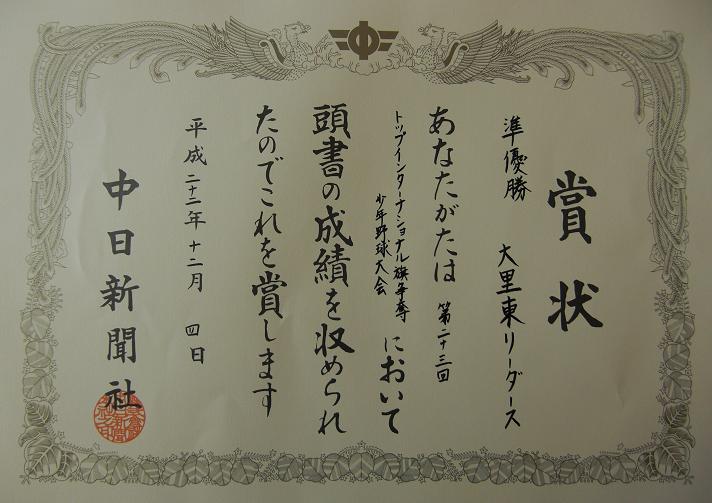 賞状
準優勝 大里東リーダース
あなたがたは 第二十三回
トップインターナショナル旗争奪
少年野球大会
において
頭書の成績を収められ
たのでこれを賞します
平成二十二年十二月 四日
中日新聞社